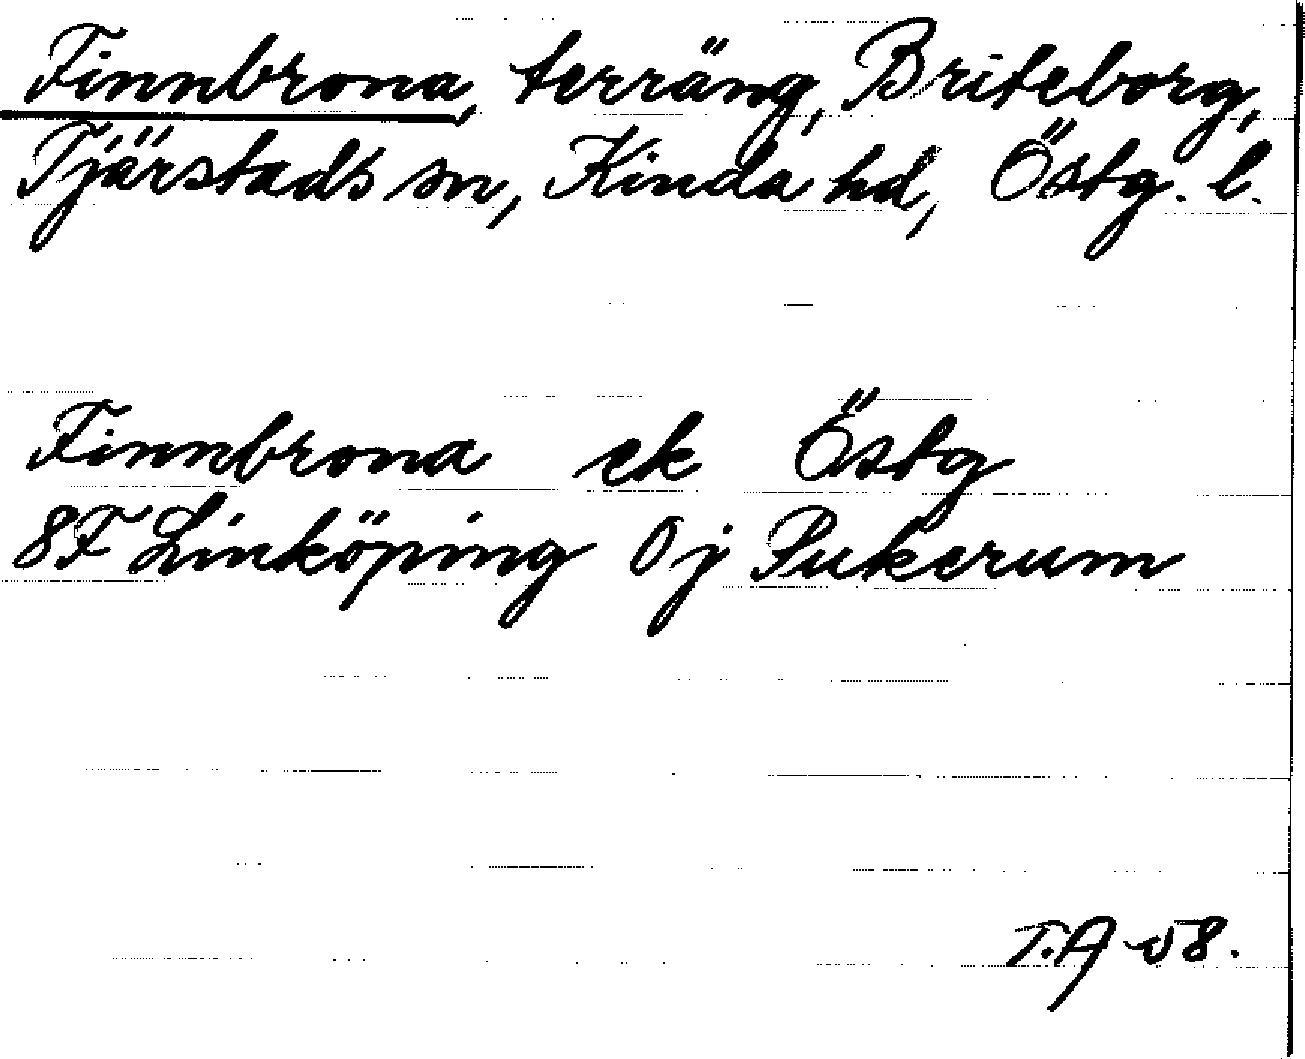 Finnbrona, terräng, Briteborg,
Tjärstads sn, Kinda hd, Östg. l.
Finnbrona ek Östg
8F Linköping 0j Pukerum
T.A -58.